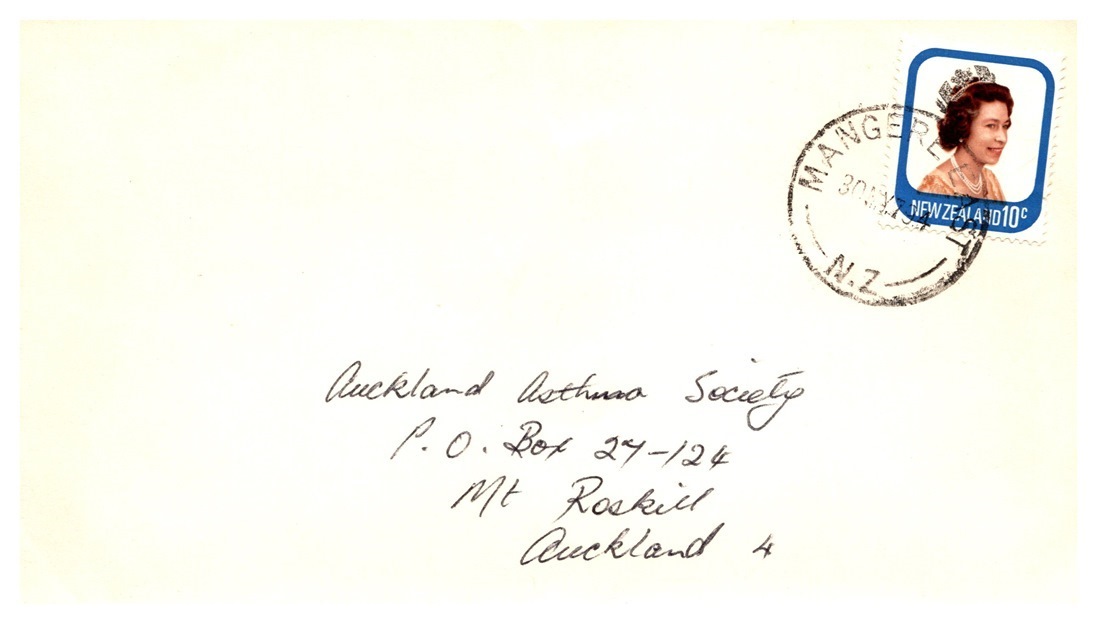 MANGERE EAST
NEW ZEALAND 10c
N.Z
Auckland Asthma Society
P. O. Box 27-124
Mt Roskill
Auckland 4